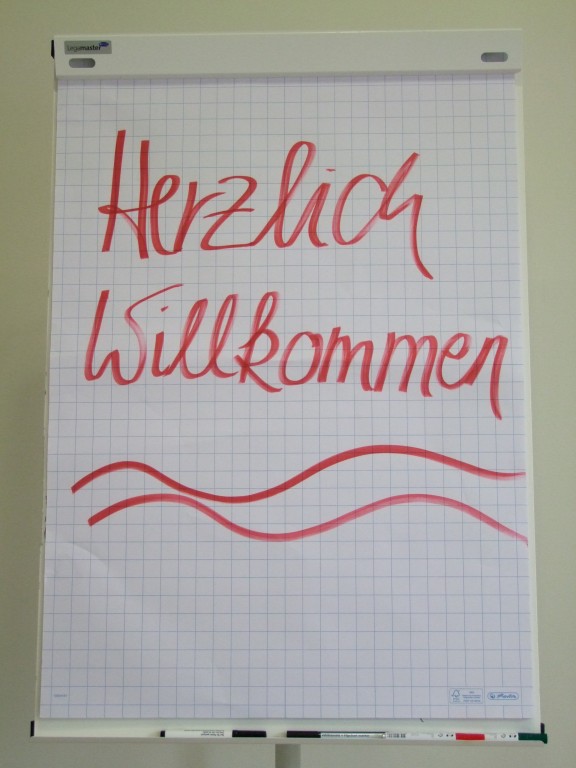 Legamaster
Herzlich
Willkommen